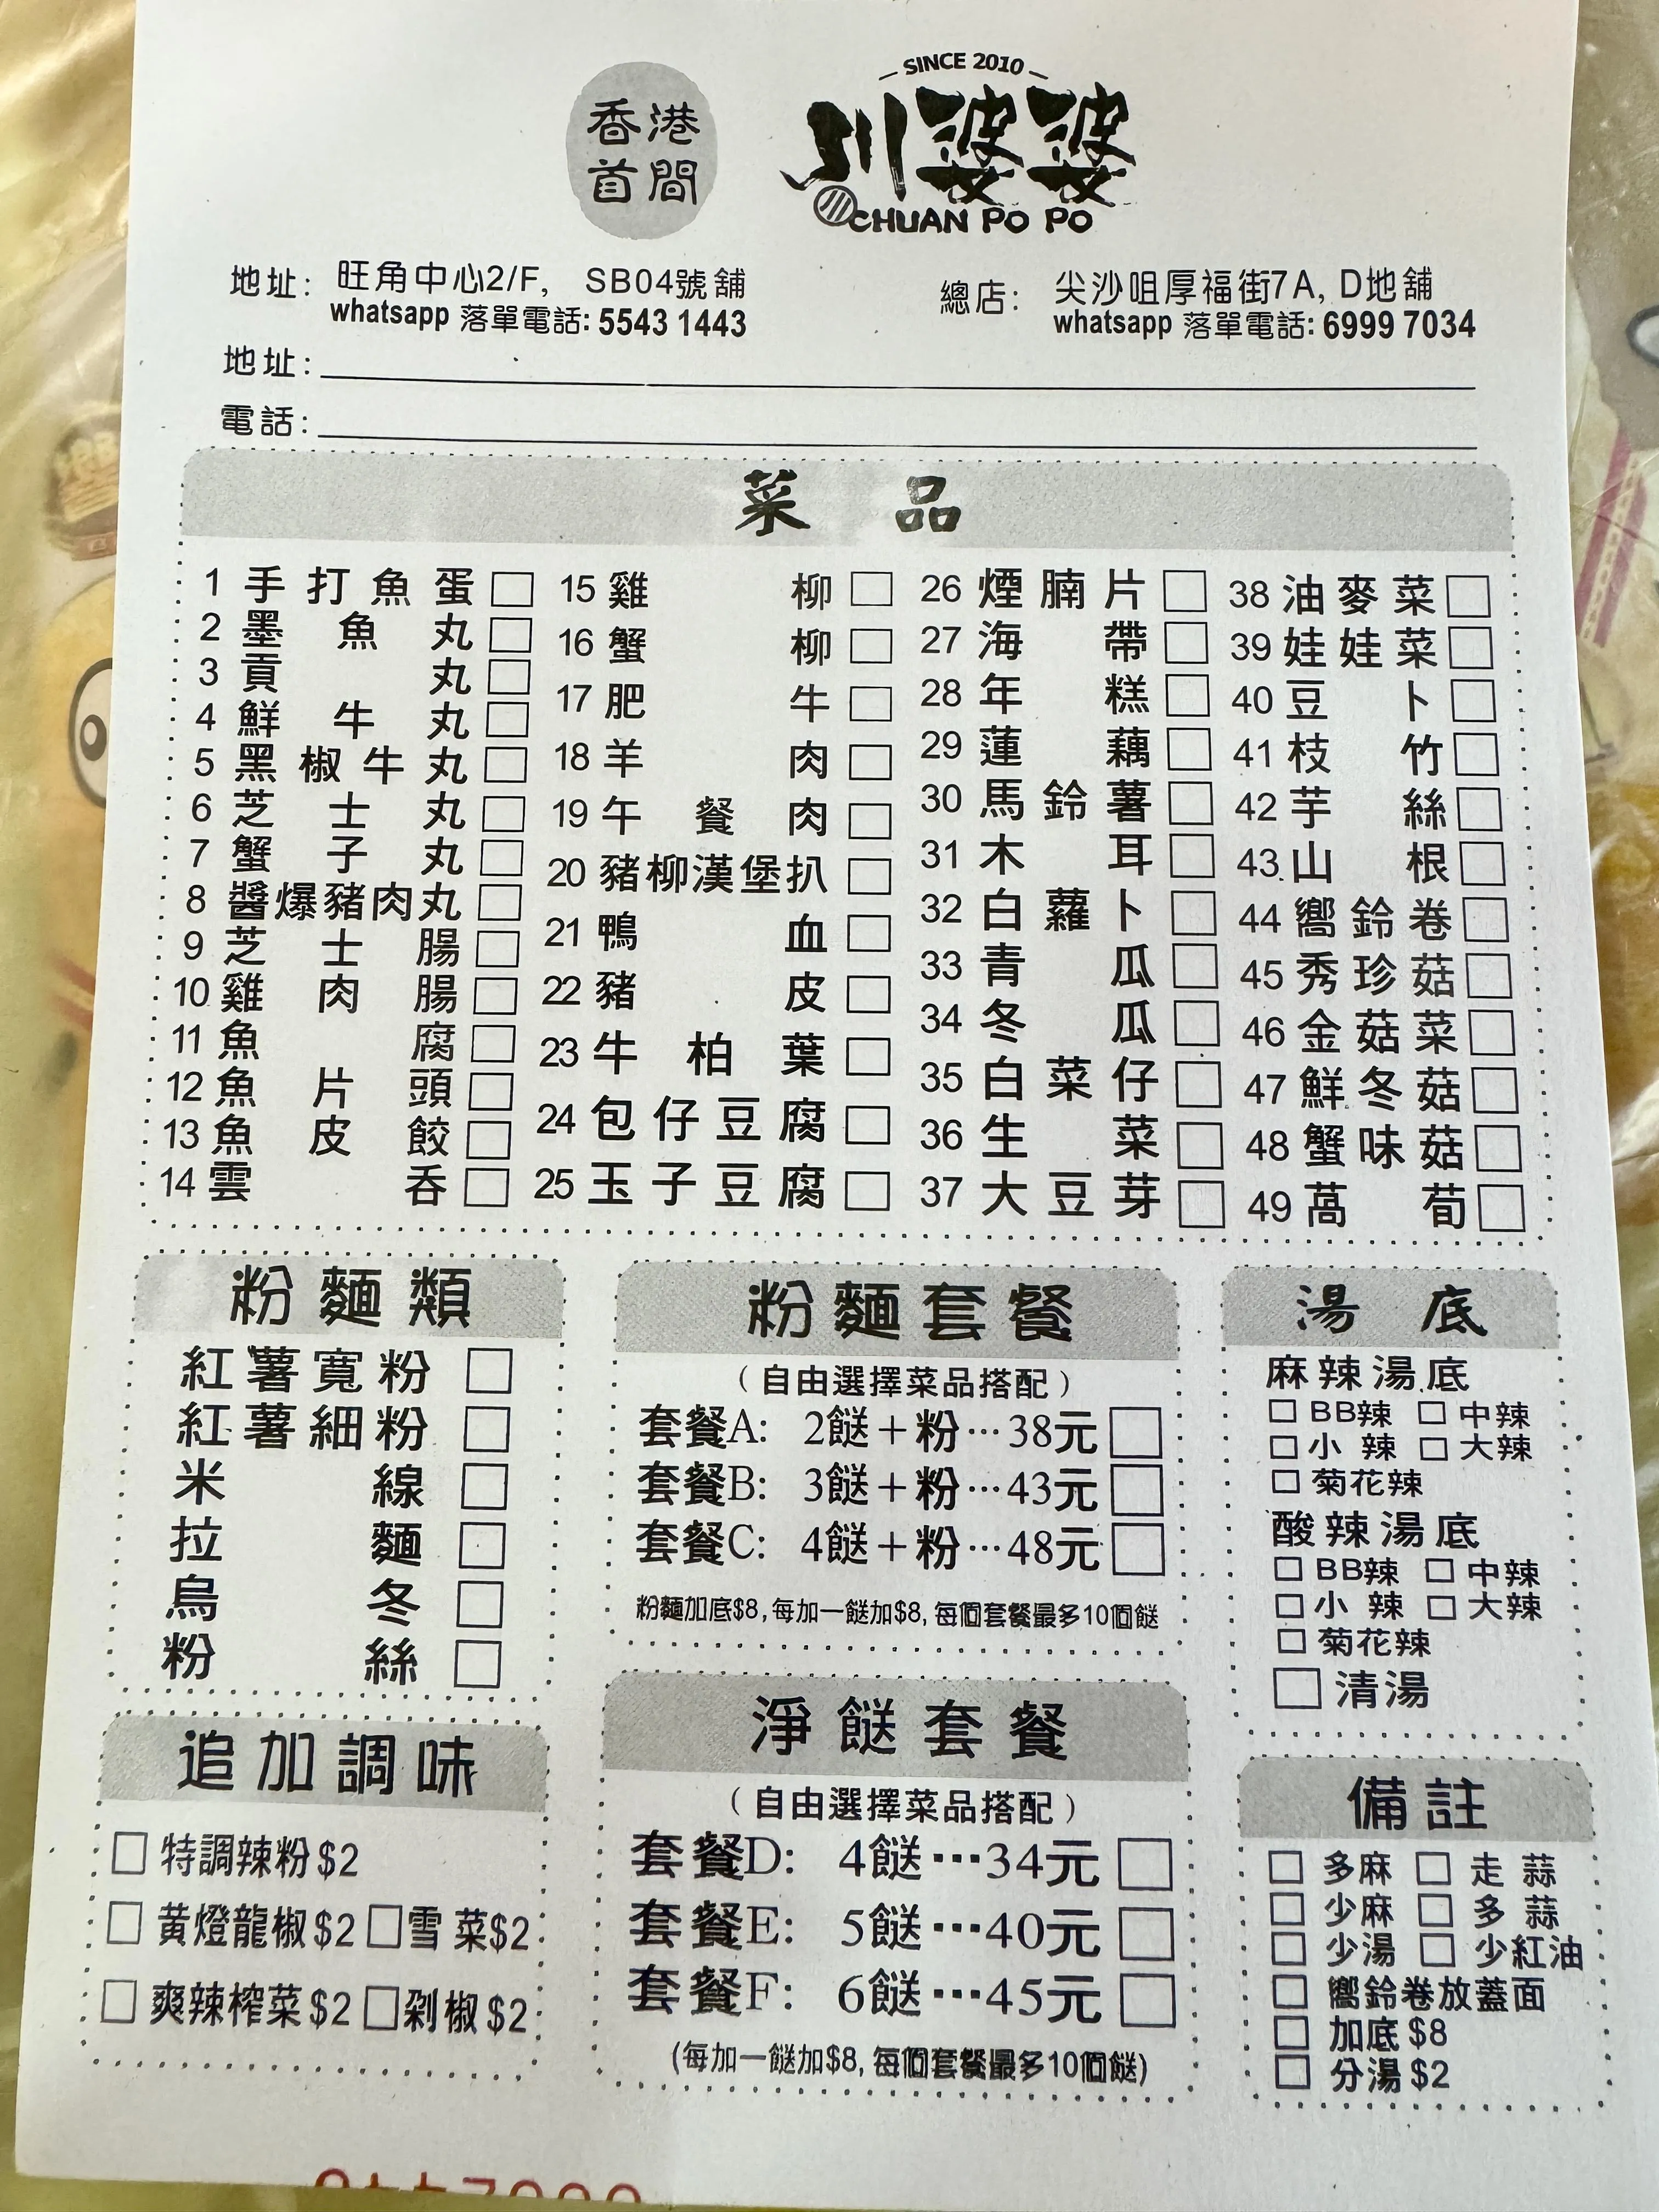 SINCE 2010
香港
首間
川婆婆
CHUAN PO PO
地址: 旺角中心2/F, SB04號舖
whatsapp 落單電話: 5543 1443
總店: 尖沙咀厚福街7A, D地舖
whatsapp 落單電話: 6999 7034
地址:
電話:
菜 品
1 手打魚蛋
2 墨魚丸
3 貢丸
4 鮮牛丸
5 黑椒牛丸
6 芝士丸
7 蟹子丸
8 醬爆豬肉丸
9 芝士腸
10 雞肉腸
11 魚腐
12 魚片頭
13 魚皮餃
14 雲吞
15 雞柳
16 蟹柳
17 肥牛
18 羊肉
19 午餐肉
20 豬柳漢堡扒
21 鴨血
22 豬皮
23 牛柏葉
24 包仔豆腐
25 玉子豆腐
26 煙腩片
27 海帶
28 年糕
29 蓮藕
30 馬鈴薯
31 木耳
32 白蘿卜
33 青瓜
34 冬瓜
35 白菜仔
36 生菜
37 大豆芽
38 油麥菜
39 娃娃菜
40 豆卜
41 枝竹
42 芋絲
43 山根
44 嚮鈴卷
45 秀珍菇
46 金菇菜
47 鮮冬菇
48 蟹味菇
49 萵荀
粉麵類
紅薯寬粉
紅薯細粉
米線
拉麵
烏冬
粉絲
粉麵套餐
(自由選擇菜品搭配)
套餐A: 2餸+粉…38元
套餐B: 3餸+粉…43元
套餐C: 4餸+粉…48元
粉麵加底$8,每加一餸加$8,每個套餐最多10個餸
湯 底
麻辣湯底
BB辣 中辣
小 辣 大辣
菊花辣
酸辣湯底
BB辣 中辣
小 辣 大辣
菊花辣
清湯
追加調味
特調辣粉$2
黃燈龍椒$2 雪菜$2
爽辣榨菜$2 剁椒$2
淨餸套餐
(自由選擇菜品搭配)
套餐D: 4餸…34元
套餐E: 5餸…40元
套餐F: 6餸…45元
(每加一餸加$8,每個套餐最多10個餸)
備註
多麻 走 蒜
少麻 多 蒜
少湯 少紅油
嚮鈴卷放蓋面
加底$8
分湯$2